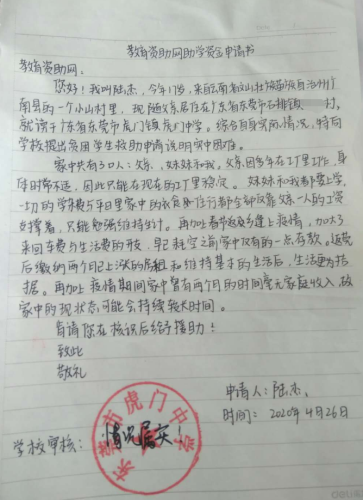 教育资助网助学资金申请书
教育资助网:
您好！我叫陆杰，今年17岁，来自云南省文山壮族苗族自治州广
南县的一个小山村里，现随父亲居住在广东省东莞市石排镇 村，
就读于广东省东莞市虎门镇虎门中学。综合自身实际情况，特向
学校提出贫困学生救助申请说明家中困难。
家中共有3口人：父亲、妹妹和我。父亲因多年在工厂里工作，身
体时常不适，因此只能在现在的工厂里稳定。妹妹和我都要上学，
一切的学杂费与平日里家中的衣食住行都全部仅靠父亲一人的工资
支撑着，只能勉强维持生计。再加上春节返乡逢上疫情，加大了
来回车费与生活费的开支，早已耗空之前家中仅有的一点存款。返莞
后缴纳两个月已上涨的房租和维持基本的生活后，生活更为拮
据。再加上疫情期间家中曾有两个月的时间毫无家庭收入，故
家中的现状态可能会持续较长时间。
肯请您在核识后给予援助！
致此
敬礼
申请人：陆杰
时间：2020年4月26日
学校审核：情况属实！
东莞市虎门中学